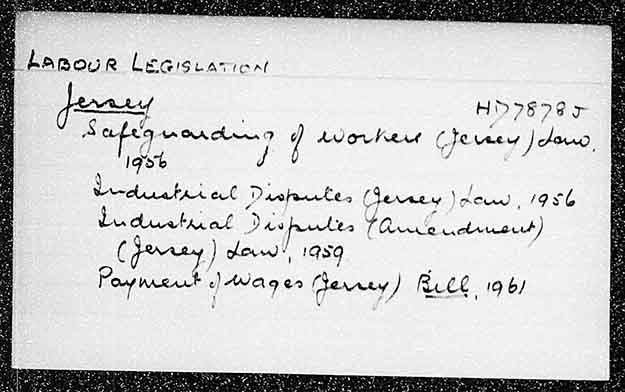 LABOUR LEGISLATION
Jersey
H77878J
Safeguarding of Workers (Jersey) Law.
1956
Industrial Disputes (Jersey) Law, 1956
Industrial Disputes (Amendment)
(Jersey) Law, 1959
Payment of Wages (Jersey) Bill, 1961